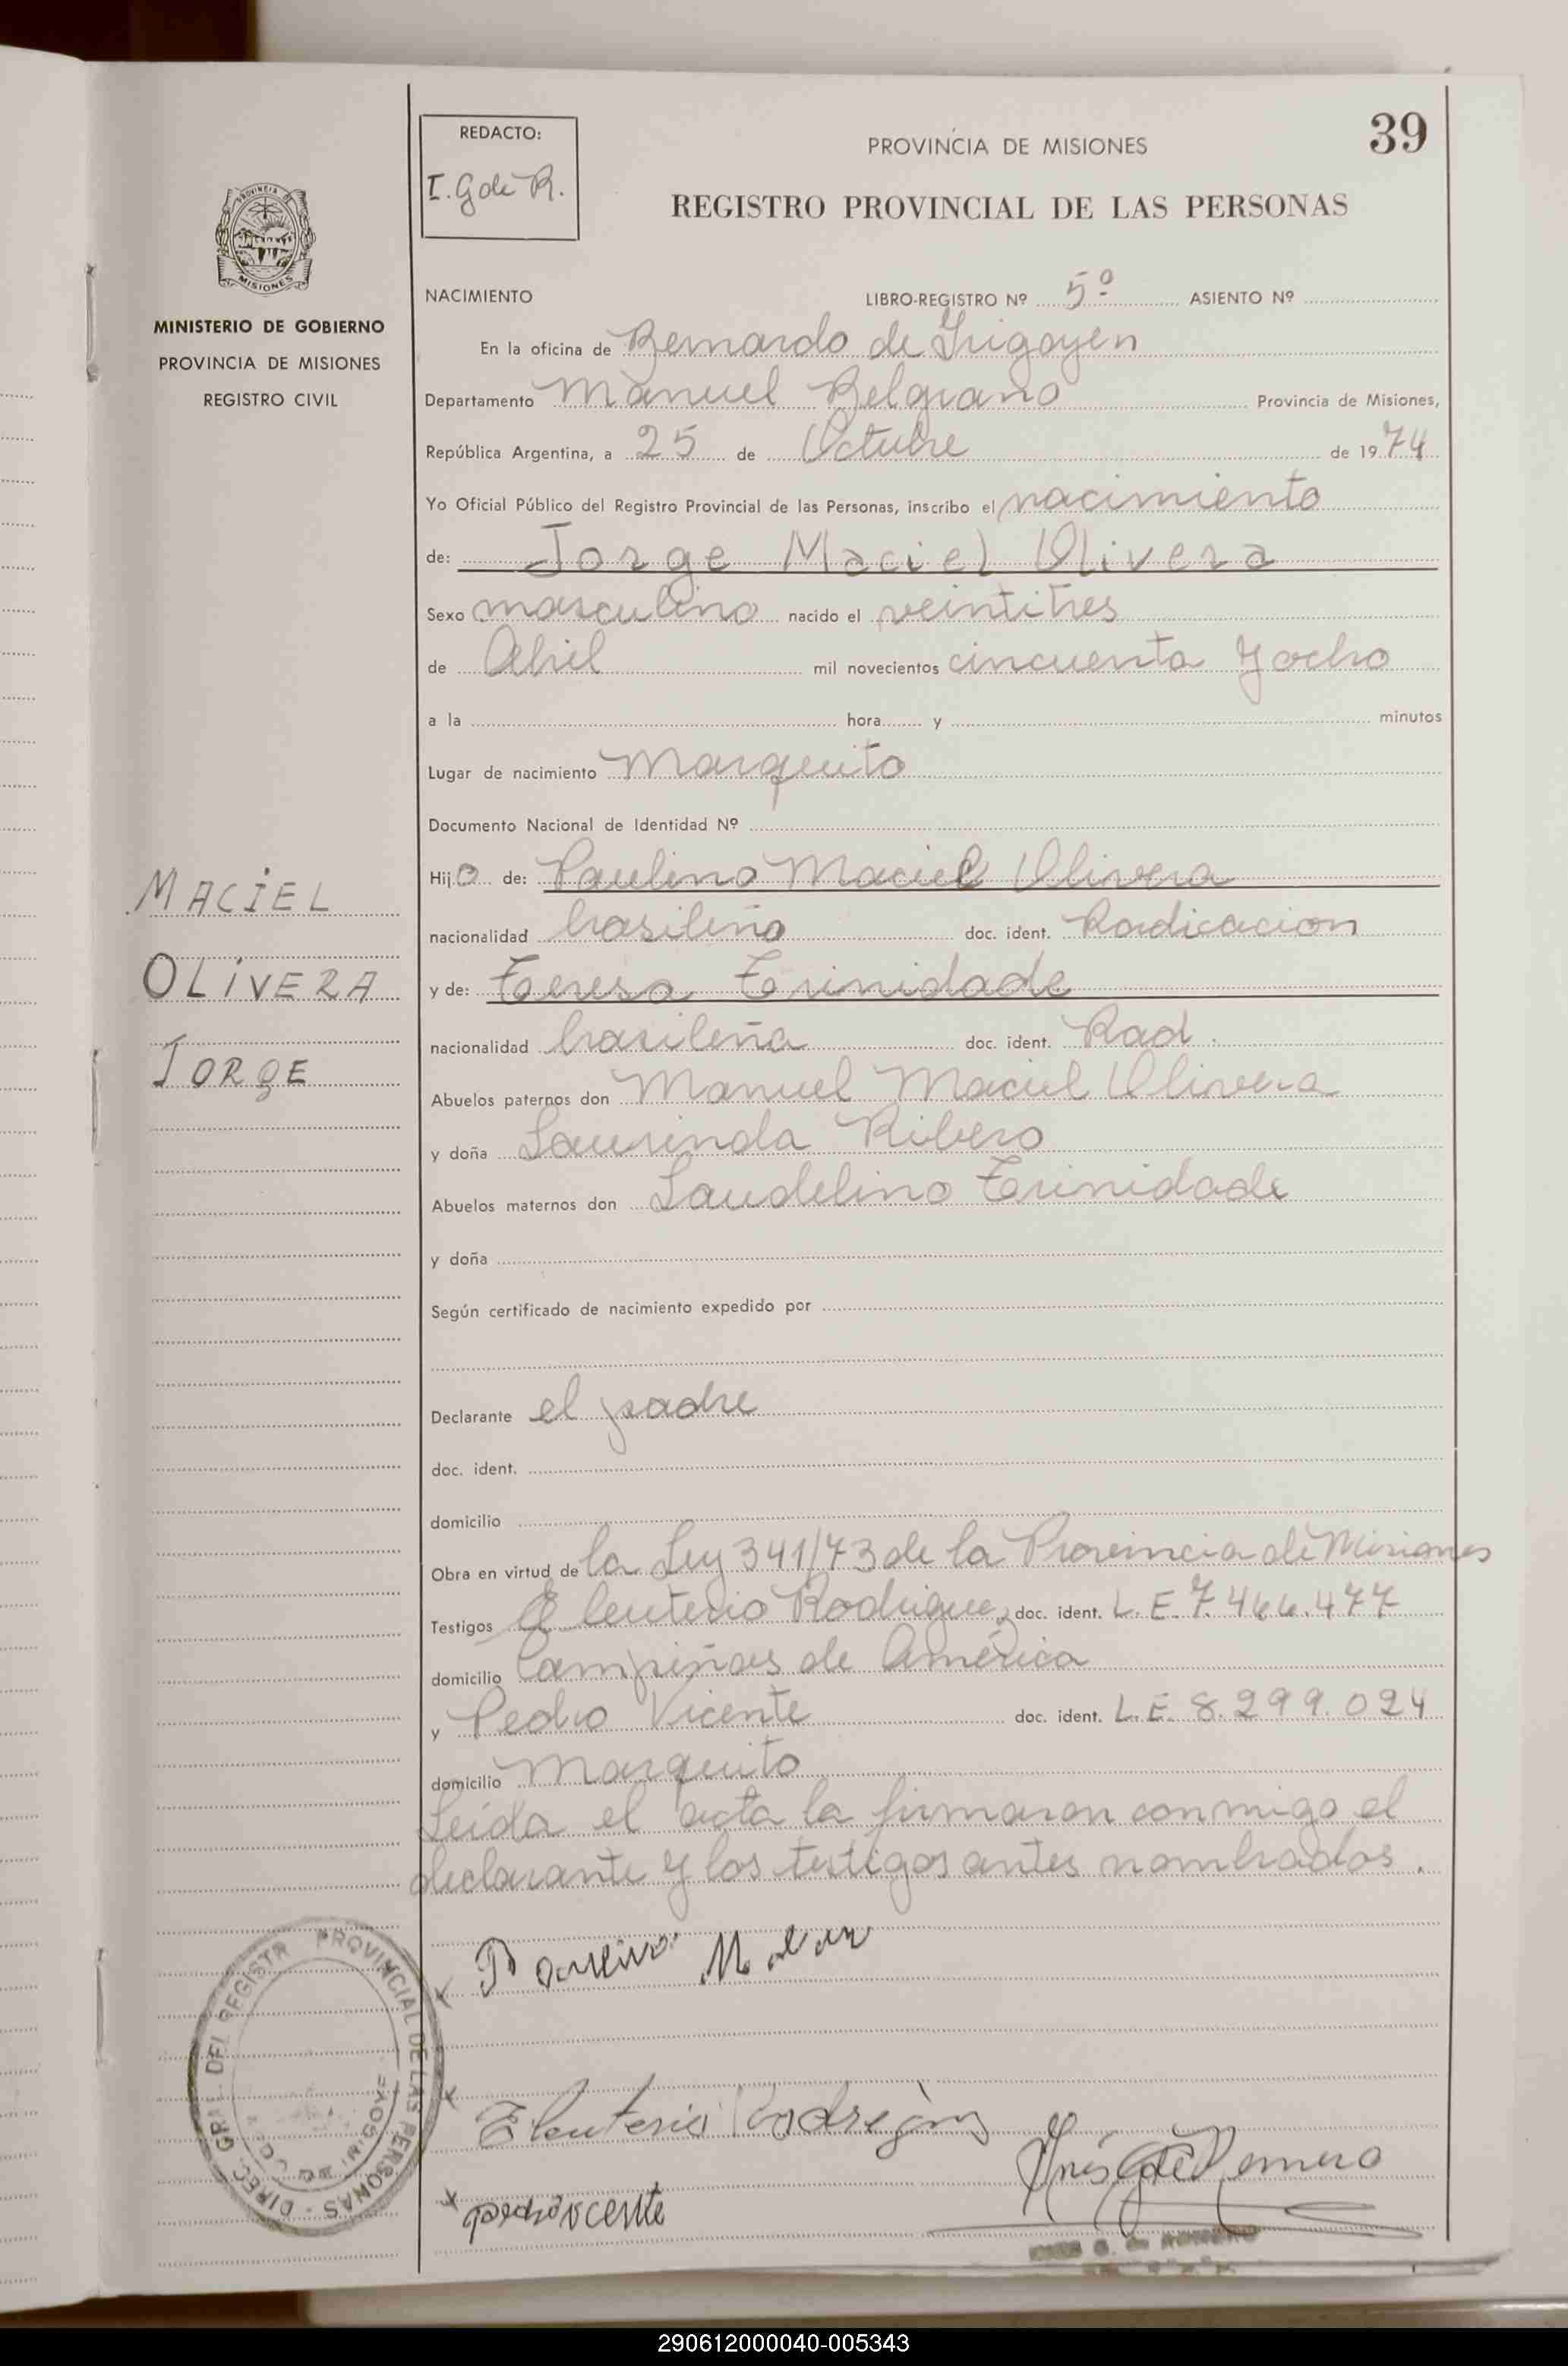 39
REDACTO:
I. G de R.
PROVINCIA DE MISIONES
REGISTRO PROVINCIAL DE LAS PERSONAS
PROVINCIA
MISIONES
MINISTERIO DE GOBIERNO
PROVINCIA DE MISIONES
REGISTRO CIVIL
NACIMIENTO LIBRO-REGISTRO Nº 5º ASIENTO Nº
En la oficina de Bernardo de Irigoyen
Departamento Manuel Belgrano Provincia de Misiones,
República Argentina, a 25 de Octubre de 1974
Yo Oficial Público del Registro Provincial de las Personas, inscribo el nacimiento
de: Jorge Maciel Olivera
Sexo masculino nacido el veintitres
de Abril mil novecientos cincuenta y ocho
a la hora y minutos
Lugar de nacimiento Marquito
Documento Nacional de Identidad Nº
Hijo de: Paulino Maciel Olivera
nacionalidad brasileño doc. ident. Radicacion
y de: Teresa Trinidade
nacionalidad brasileña doc. ident. Rad.
Abuelos paternos don Manuel Maciel Olivera
y doña Laurinda Ribero
Abuelos maternos don Laudelino Trinidade
y doña
Según certificado de nacimiento expedido por
Declarante el padre
doc. ident.
domicilio
Obra en virtud de la Ley 341/73 de la Provincia de Misiones
Testigos Eleuterio Rodriguez doc. ident. L.E. 7.466.477
domicilio Campiñas de América
y Pedro Vicente doc. ident. L.E. 8.299.024
domicilio Marquito
Leída el acta la firmaron conmigo el
declarante y los testigos antes nombrados.
MACIEL
OLIVERA
JORGE
DIREC. GRL. DEL REGISTR PROVINCIAL DE LAS PERSONAS
Eleuterio Rodregas
Inés G de Romero
pedro vcente
INES G. de ROMERO
290612000040-005343